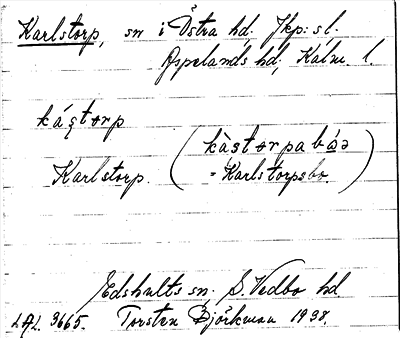 Karlstorp, sn i Östra hd. Jkp: sl.
Aspelands hd, Kalm. l.
káṣtorp
Karlstorp.
(kàstorpabóə
= Karlstorpsbo.)
Edshults sn; S. Vedbo hd
LAL. 3665. Torsten Björkman 1938.